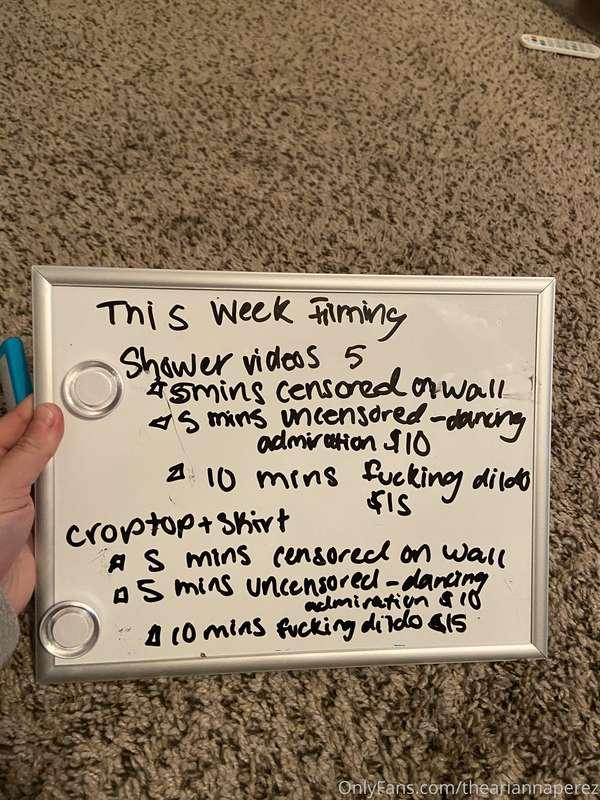 This Week Filming
Shower videos 5
5 mins censored on wall
5 mins uncensored - dancing
admiration $10
10 mins fucking dildo
$15
croptop + skirt
5 mins censored on wall
5 mins uncensored - dancing
admiration $10
10 mins fucking dildo $15
OnlyFans.com/theariannaperez